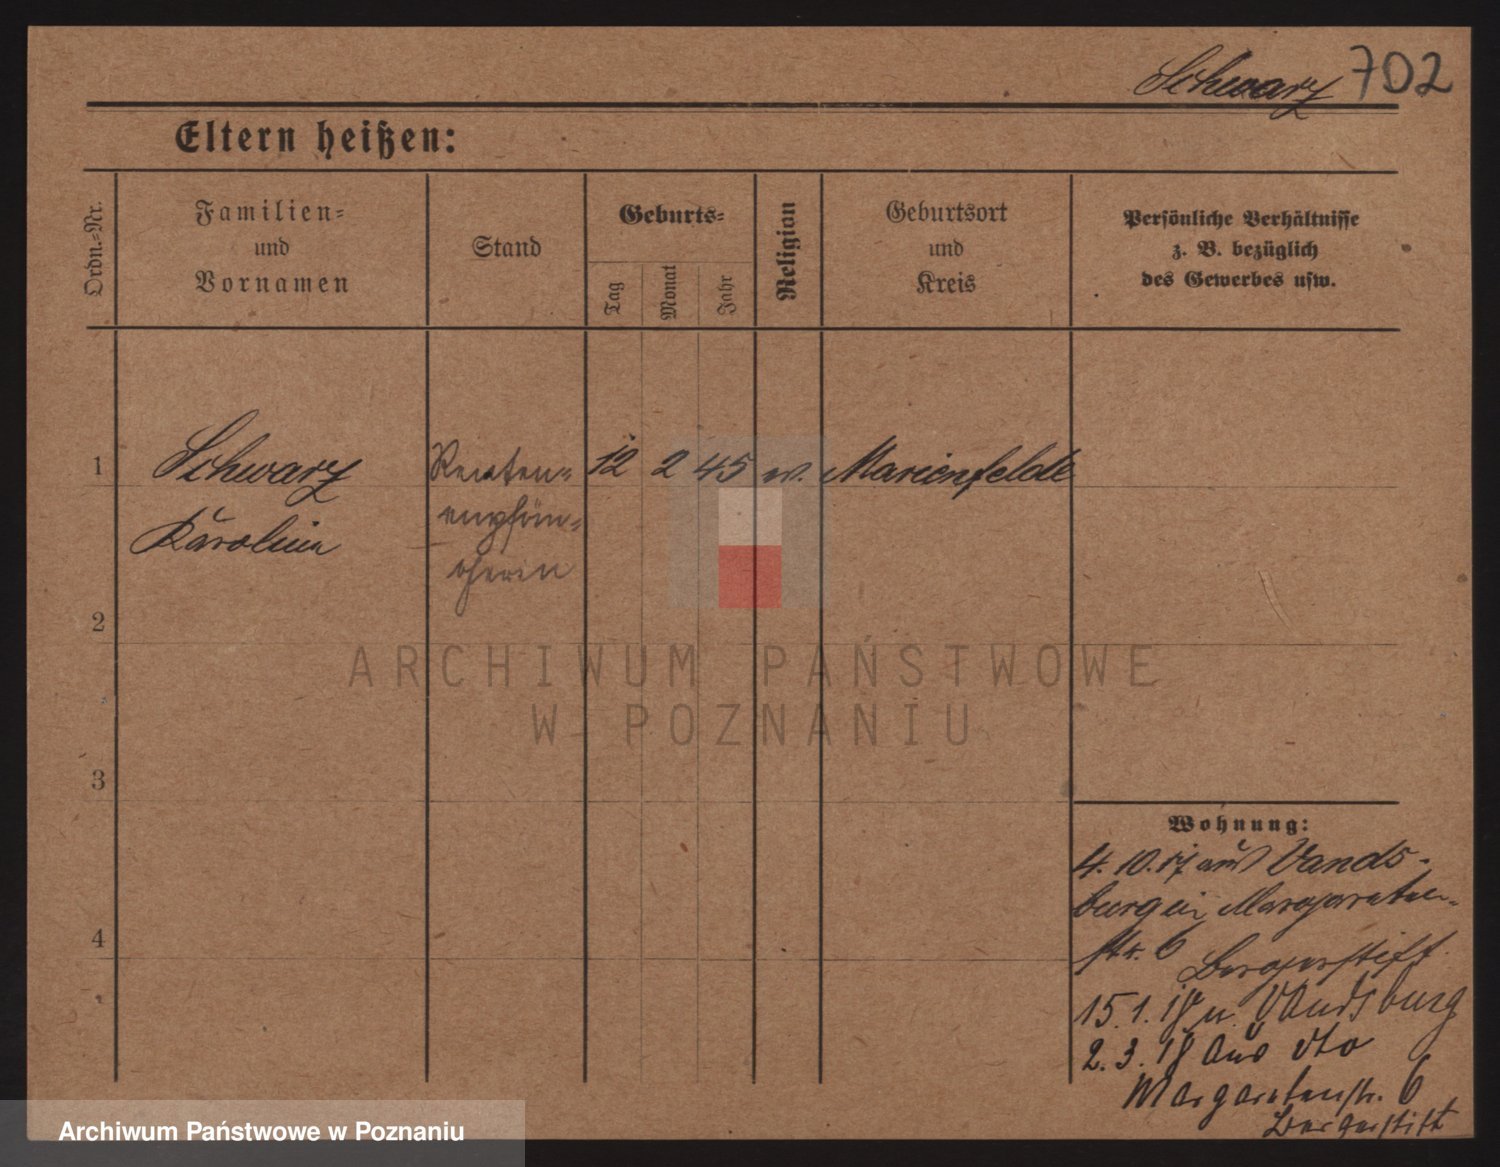 Schwarz 702
Eltern heißen:
Ordn.=Nr.
Familien=
und
Vornamen
Stand
Geburts=
Tag
Monat
Jahr
Religion
Geburtsort
und
Kreis
Persönliche Verhältnisse
z. B. bezüglich
des Gewerbes usw.
1 Schwarz Renten= 12 2 45 w. Marienfelde
Karoline empfän=
gerin
2
3
4
ARCHIWUM PAŃSTWOWE
W POZNANIU
Wohnung:
4. 10. 17 aus Vands-
burg in Margareten-
str. 6 Bergerstift
15. 1. 18 n. Vandsburg
2. 3. 18 aus dto
Margaretenstr. 6
Bergerstift
Archiwum Państwowe w Poznaniu